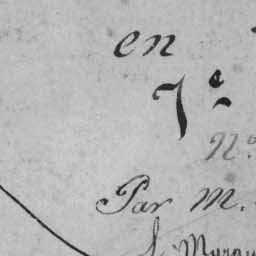 en
7.e
N.o
Par M.